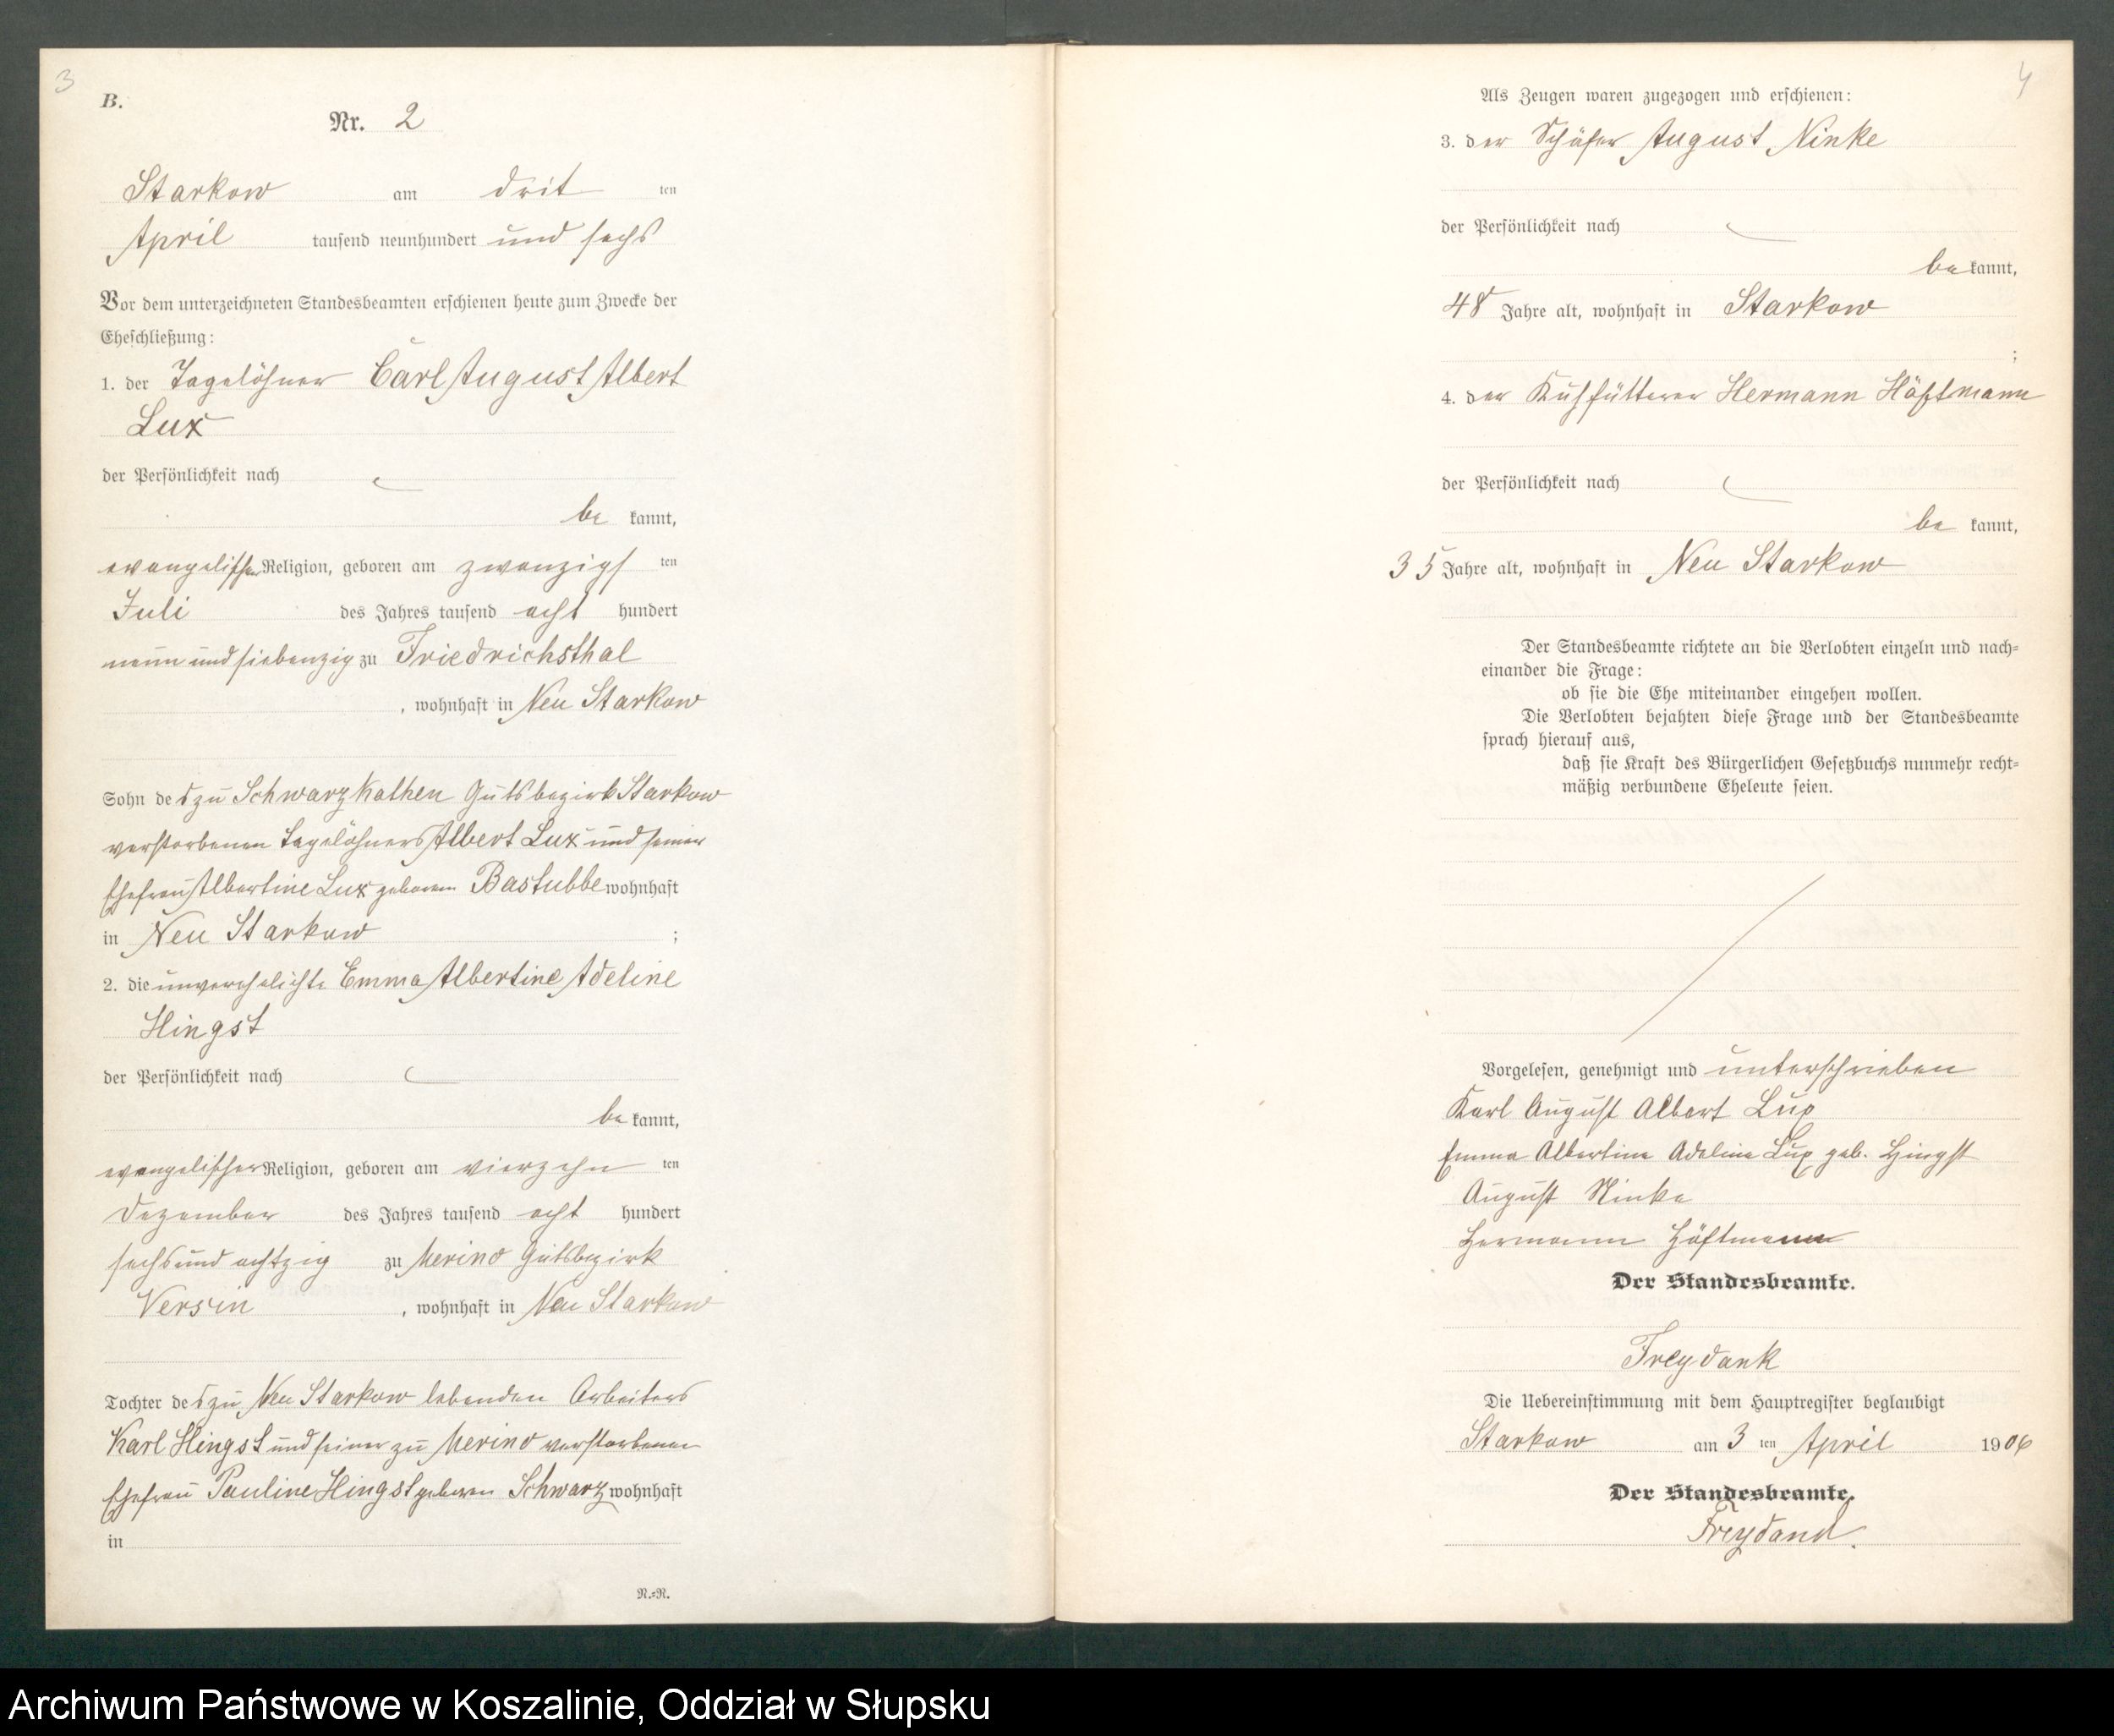 3
B.
Nr. 2
Starkow am drit ten
April tausend neunhundert und sechs
Vor dem unterzeichneten Standesbeamten erschienen heute zum Zwecke der
Eheschließung:
1. der Tagelöhner Carl August Albert
Lux
der Persönlichkeit nach
be kannt,
evangelischer Religion, geboren am zwanzigs ten
Juli des Jahres tausend acht hundert
neun und siebenzig zu Friedrichsthal
, wohnhaft in Neu Starkow
Sohn des zu Schwarzkathen Gutsbezirk Starkow
verstorbenen Tagelöhners Albert Lux und seiner
Ehefrau Albertine Lux geborenen Bastubbe wohnhaft
in Neu Starkow ;
2. die unverehelichte Emma Albertine Adeline
Hingst
der Persönlichkeit nach
be kannt,
evangelischer Religion, geboren am vierzehn ten
Dezember des Jahres tausend acht hundert
sechs und achtzig zu Merino Gutsbezirk
Versin , wohnhaft in Neu Starkow
Tochter des zu Neu Starkow lebenden Arbeiters
Karl Hingst und seiner zu Merino verstorbenen
Ehefrau Pauline Hingst geboren Schwarz wohnhaft
in
N.=R.
4
Als Zeugen waren zugezogen und erschienen:
3. der Schäfer August Ninke
der Persönlichkeit nach
be kannt,
48 Jahre alt, wohnhaft in Starkow
;
4. der Kuhfütterer Hermann Höftmann
der Persönlichkeit nach
be kannt,
35 Jahre alt, wohnhaft in Neu Starkow
Der Standesbeamte richtete an die Verlobten einzeln und nach=
einander die Frage:
ob sie die Ehe miteinander eingehen wollen.
Die Verlobten bejahten diese Frage und der Standesbeamte
sprach hierauf aus,
daß sie Kraft des Bürgerlichen Gesetzbuchs nunmehr recht=
mäßig verbundene Eheleute seien.
Vorgelesen, genehmigt und unterschrieben
Karl August Albert Lux
Emma Albertine Adeline Lux geb. Hingst
August Ninke
Hermann Höftmann
Der Standesbeamte.
Freydank
Die Uebereinstimmung mit dem Hauptregister beglaubigt
Starkow am 3 ten April 1906
Der Standesbeamte.
Freydank.
Archiwum Państwowe w Koszalinie, Oddział w Słupsku